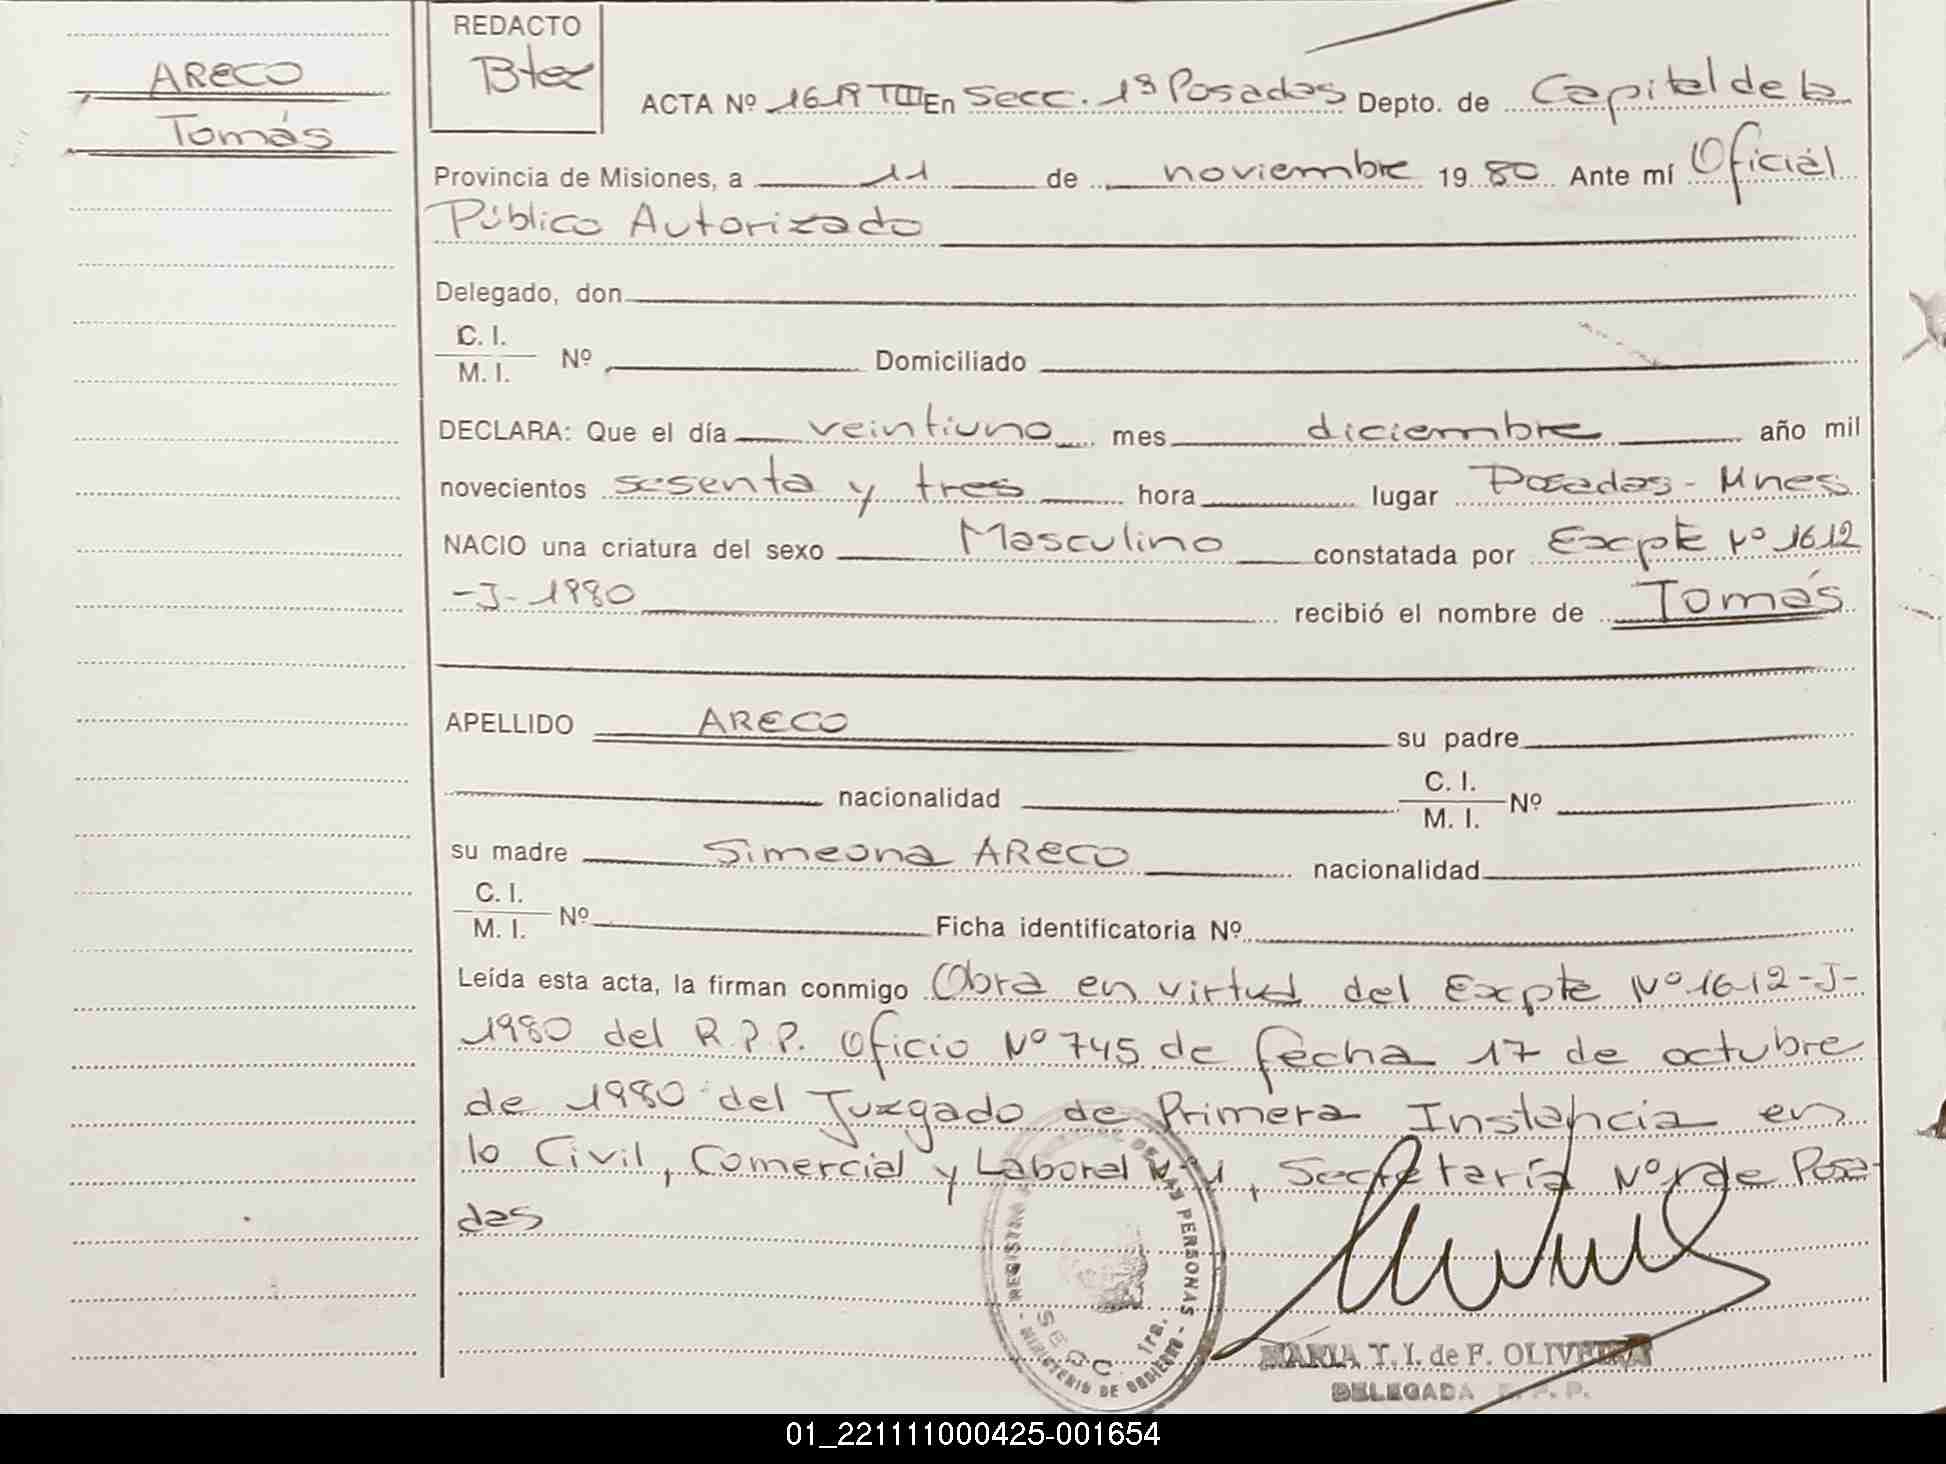 ARECO
Tomás
REDACTO
Btez
ACTA Nº 1619 TIII En Secc. 1ª Posadas Depto. de Capital de la
Provincia de Misiones, a 11 de noviembre 19 80 Ante mí Oficial
Público Autorizado
Delegado, don
C. I.
M. I. Nº Domiciliado
DECLARA: Que el día veintiuno mes diciembre año mil
novecientos sesenta y tres hora lugar Posadas - Mnes
NACIO una criatura del sexo Masculino constatada por Expte Nº 1612
-J- 1980 recibió el nombre de Tomás
APELLIDO ARECO su padre
nacionalidad C. I.
M. I. Nº
su madre Simeona ARECO nacionalidad
C. I.
M. I. Nº Ficha identificatoria Nº
Leída esta acta, la firman conmigo Obra en virtud del Expte Nº 1612-J-
1980 del R.P.P. Oficio Nº 745 de fecha 17 de octubre
de 1980 del Juzgado de Primera Instancia en
lo Civil, Comercial y Laboral Nº1, Secretaría Nº1 de Posa-
das
REGISTRO DE LAS PERSONAS - MINISTERIO DE GOBIERNO -
SECC. 1ra.
MARIA T. I. de F. OLIVEIRA
DELEGADA R. P. P.
01_221111000425-001654